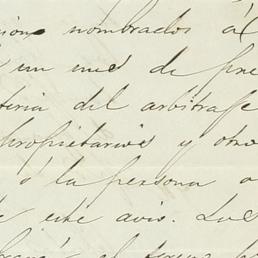 nombrados á
un mes de pre
teria del arbitrage
propietarios y otro
ó la persona o
este avis. Los
el